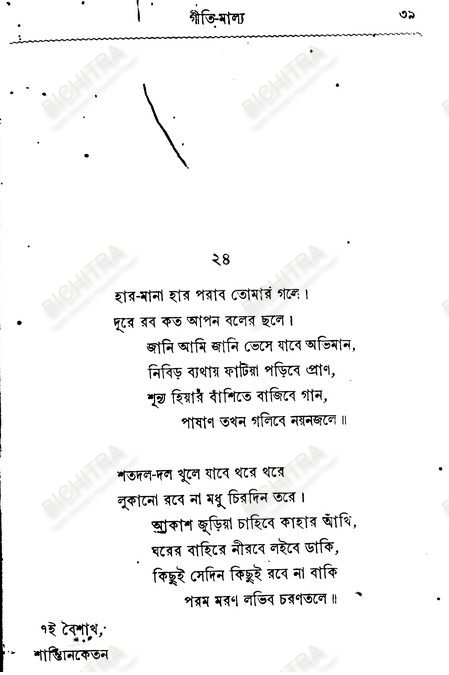 গীতি-মাল্য ৩৯
২৪
হার-মানা হার পরাব তোমার গলে।
দূরে রব কত আপন বলের ছলে।
জানি আমি জানি ভেসে যাবে অভিমান,
নিবিড় ব্যথায় ফাটিয়া পড়িবে প্রাণ,
শূন্য হিয়ার বাঁশিতে বাজিবে গান,
পাষাণ তখন গলিবে নয়নজলে॥
শতদল-দল খুলে যাবে থরে থরে
লুকানো রবে না মধু চিরদিন তরে।
আকাশ জুড়িয়া চাহিবে কাহার আঁখি,
ঘরের বাহিরে নীরবে লইবে ডাকি,
কিছুই সেদিন কিছুই রবে না বাকি
পরম মরণ লভিব চরণতলে॥
৭ই বৈশাখ,
শান্তিনিকেতন
BICHITRA
BICHITRA
BICHITRA
BICHITRA
BICHITRA
BICHITRA
BICHITRA
BICHITRA